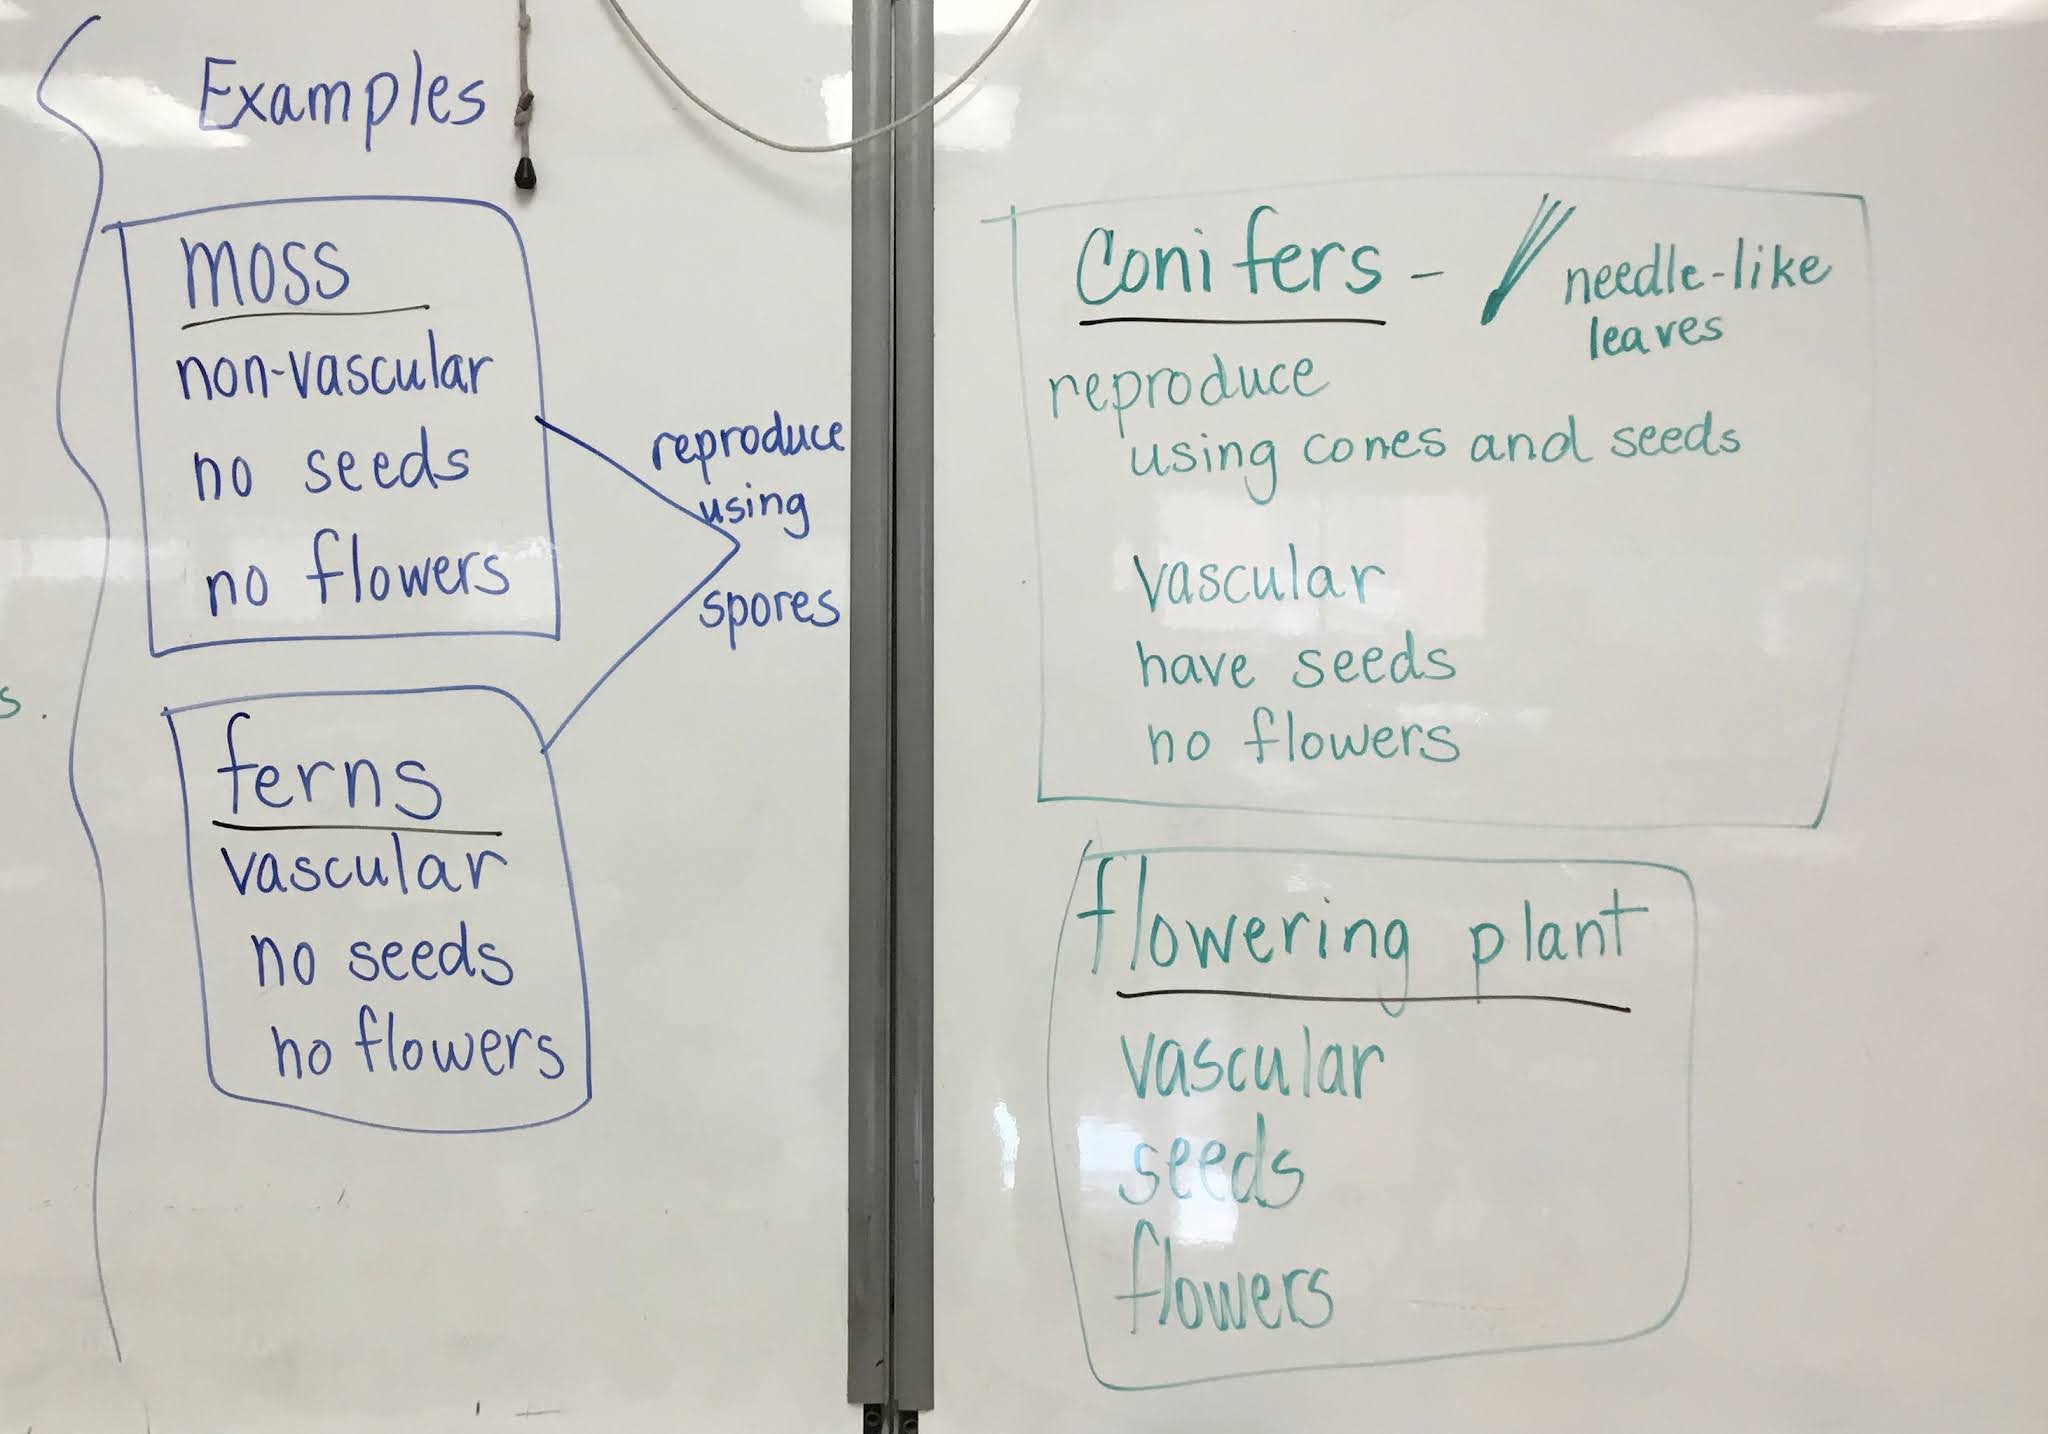 Examples
moss
non-vascular
no seeds
no flowers
reproduce
using
spores
ferns
vascular
no seeds
no flowers
Conifers -
needle-like
leaves
reproduce
using cones and seeds
vascular
have seeds
no flowers
flowering plant
vascular
seeds
flowers